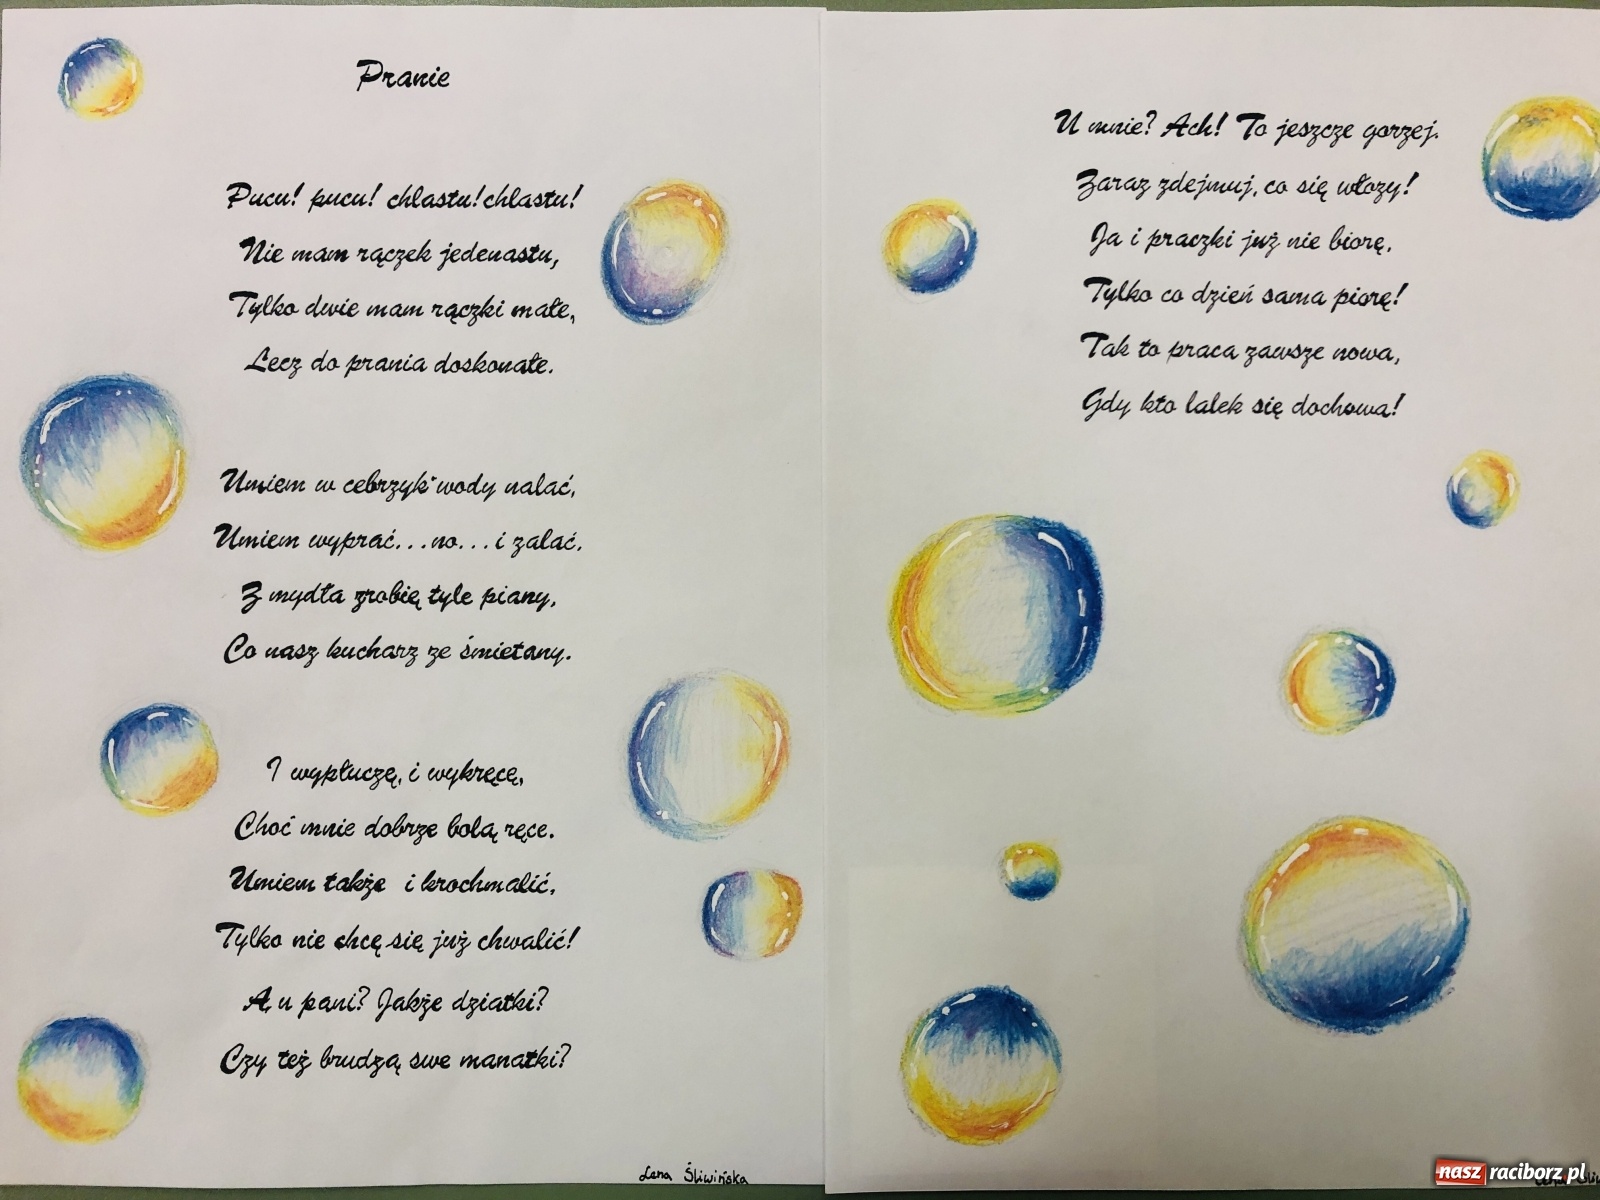 Pranie
Pucu! pucu! chlastu! chlastu!
Nie mam rączek jedenastu,
Tylko dwie mam rączki małe,
Lecz do prania doskonałe.
Umiem w cebrzyk wody nalać,
Umiem wyprać...no...i zalać,
Z mydła zrobię tyle piany,
Co nasz kucharz ze śmietany.
I wypłuczę, i wykręcę,
Choć mnie dobrze bolą ręce.
Umiem także i krochmalić,
Tylko nie chcę się już chwalić!
A u pani? Jakże dziatki?
Czy też brudzą swe manatki?
Lena Śliwińska
U mnie? Ach! To jeszcze gorzej.
Zaraz zdejmuj, co się włozy!
Ja i praczki już nie biorę,
Tylko co dzień sama piorę!
Tak to praca zawsze nowa,
Gdy kto lalek się dochowa!
nasz raciborz.pl